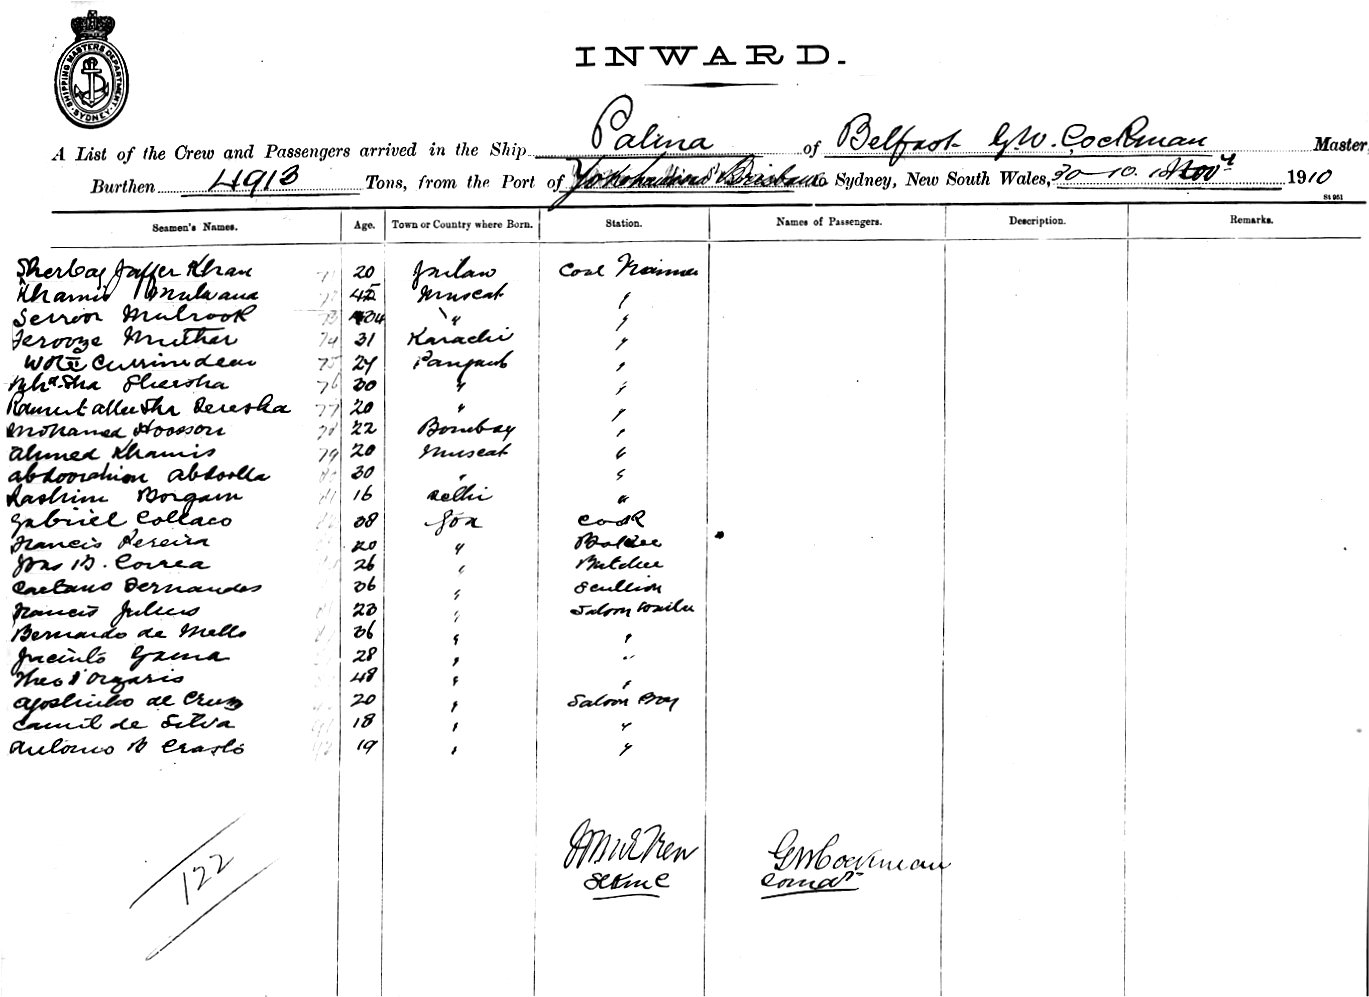 SHIPPING MASTERS DEPARTMENT SYDNEY
INWARD.
A List of the Crew and Passengers arrived in the Ship Palma of Belfast G W. Cockman Master
Burthen 4913 Tons, from the Port of Yokohama Brisbane to Sydney, New South Wales, 30-10. Novr 1910
St 951
Seamen's Names. Age. Town or Country where Born. Station. Names of Passengers. Description. Remarks.
Sherbaz Jaffer Khan 20 Coal Trimmer
Khamis Mulwana 42 Muscat "
Mubrook 34 " "
Ferooze 31 Karachi "
Currimdean 24 Punjaub "
Shersha 76 30 " "
77 20 " "
Mohamed Hoosson 22 Bombay "
Ahmed Khamis 79 20 Muscat "
Abdoorahim Abdoolla 30 " "
16 Delhi "
Gabriel Collaco 38 Goa Cook
Francis Pereira 20 " Baker
B. Correa 26 " Butcher
Caetano Fernandes 36 " Scullion
Francis Julius 23 " Saloon Waiter
Bernardo de Mello 36 " "
Jacinto Gama 28 " "
48 " "
Agostinho de Cruz 20 " Saloon Boy
de Silva 18 " "
Antonio B Crasto 19 " "
122
G W Cockman
Comdr